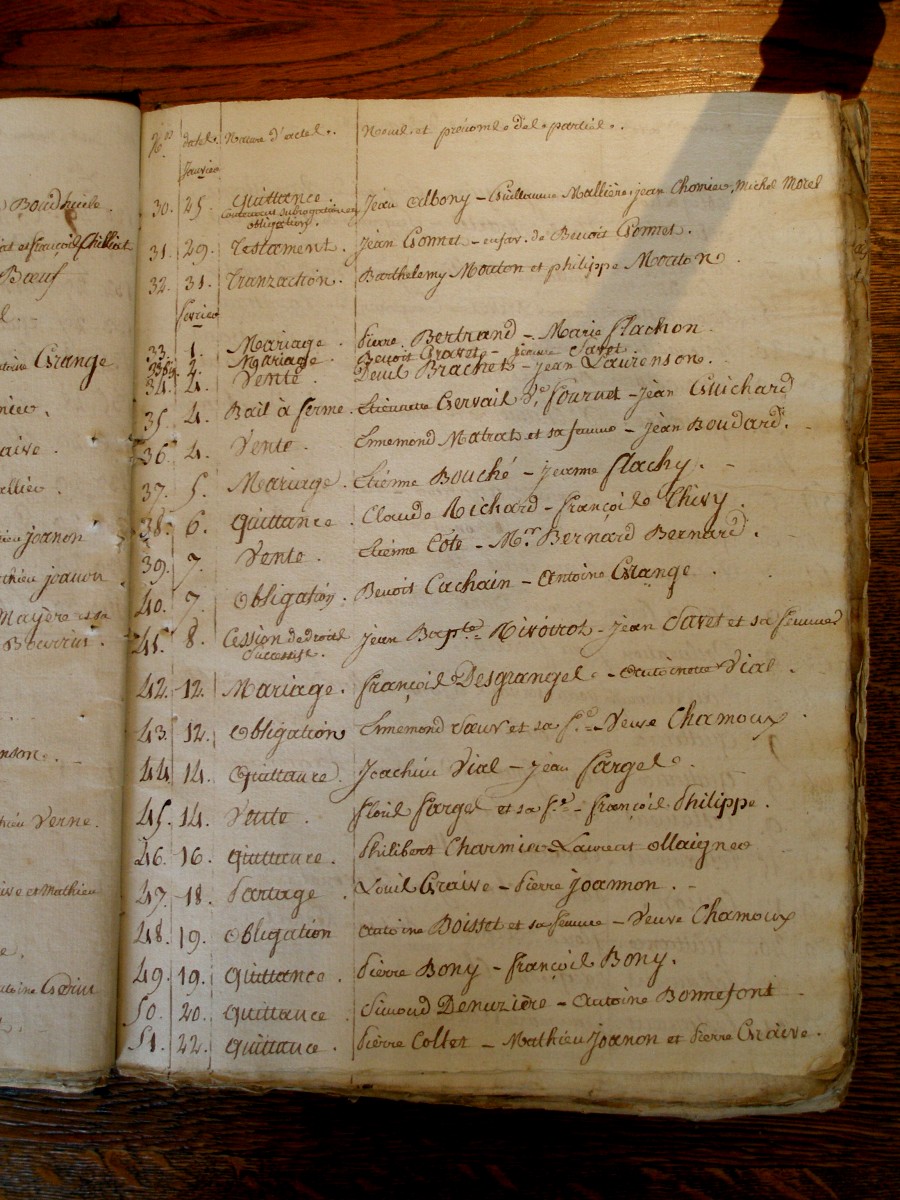 Boudhuile.
et françois Chilliat
Bœuf
Grange
joanon
joanon
Mayère et sa
Verne.
et Mathieu
Nos dates Nature d'actes. Noms et prénoms des parties.
Janvier
30. 25. Quittance. Jean Albony - Guillaume Mallière, jean Chomier, Michel Morel
contenant subrogation en
obligation.
31. 29. Testament. Jean Gonnet - en fav. de Benoit Gonnet.
32. 31. Tranzaction. Barthelemy Mouton et philippe Mouton
fevrier
33. 1. Mariage. Pierre Bertrand - Marie flachon.
2. Mariage. Benoit Gravet - pierrre Savet
34. 4. Vente. Denis Brachet - jean Laurenson.
35. 4. Bail à ferme. Etiennette Gervais Ve. fournet - jean Guichard
36. 4. Vente. Ennemond Matrat et sa femme - jean Boudard.
37. 5. Mariage. Etienne Bouché - jeanne flachy.
38. 6. Quittance. Claude Richard - françois Chivy
39. 7. Vente. Etienne Cote - Mr. Bernard Bernard.
40. 7. Obligation. Benoit Cachain - Antoine Grange.
41. 8. Cession de droits jean Bapte. Rivoirot - jean Savet et sa femme
successifs.
42. 12. Mariage. françois Desgranges - antoinette Vial.
43. 12. Obligation Ennemond Sœur et sa fe. - Veuve Chamoux
44. 14. Quittance. Joachim Vial - jean farges.
45. 14. Vente. floris farges et sa fe. - françois Philippe.
46. 16. Quittance. Philibert Charmier - Laurent Maignet
47. 18. Partage. Louis Graive - Pierre joannon.
48. 19. Obligation antoine Boisset et sa femme - Veuve Chamoux
49. 19. Quittance. Pierre Bony - françois Bony.
50. 20. Quittance Simond Denuzière - Antoine Bonnefont
51. 22. Quittance. Pierre Collet - Mathieu joanon et Pierre Graive.